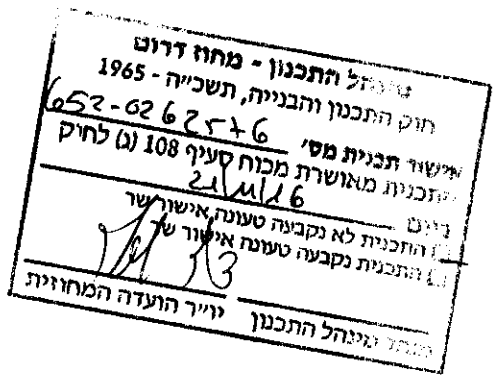 מינהל התכנון - מחוז דרום
חוק התכנון והבנייה, תשכ״ה - 1965
אישור תכנית מס׳ 652-0262576
התכנית מאושרת מכוח סעיף 108 (ג) לחוק
ביום 21/11/16
התכנית לא נקבעה טעונה אישור שר
התכנית נקבעה טעונה אישור שר
מנהל מינהל התכנון יו״ר הועדה המחוזית